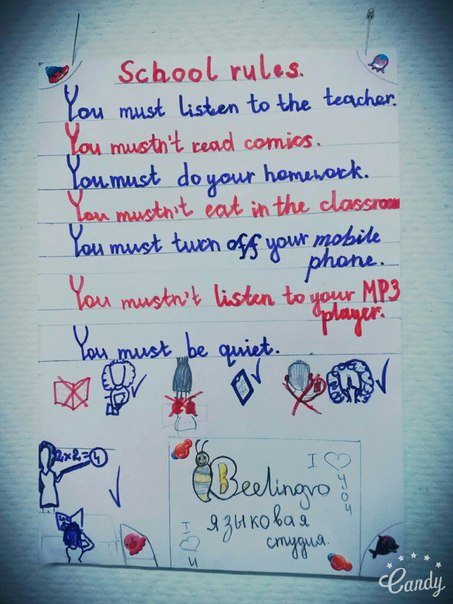 School rules.
You must listen to the teacher.
You mustn't read comics.
You must do your homework.
You mustn't eat in the classroom
You must turn off your mobile
phone.
You mustn't listen to your MP3
player.
You must be quiet.
2×2=4
Beelingvo
языковая
студия.
I ♡
you
I ♡
u
Candy